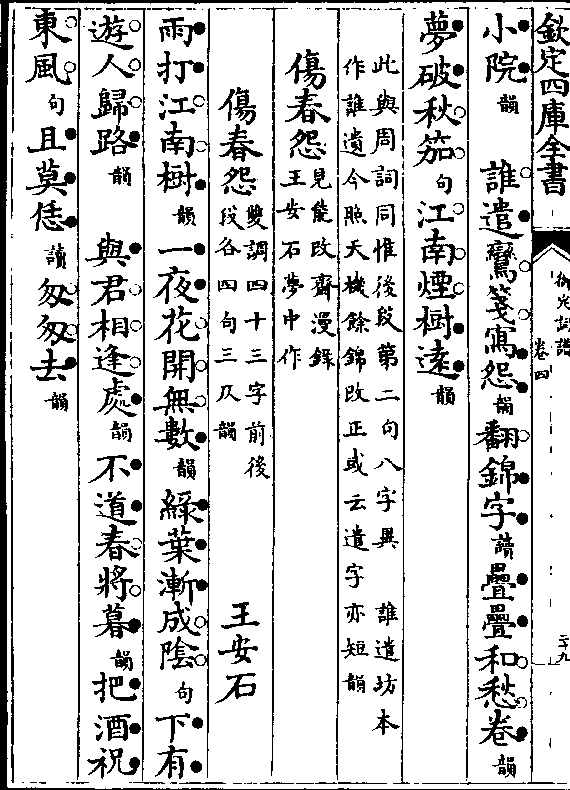 欽定四庫全書
御定詞譜
卷四
二十九
小院韻　誰遣鸞箋寫怨韻翻錦字讀疊疊和愁卷韻
夢破秋笳句江南煙樹遠韻
此與周詞同惟後段第二句八字異　誰遣坊本
作誰遺今照天機餘錦改正或云遣字亦短韻
傷春怨見能改齋漫錄
王安石夢中作
傷春怨雙調四十三字前後
段各四句三仄韻　王安石
雨打江南樹韻一夜花開無數韻綠葉漸成陰句下有
遊人歸路韻　與君相逢處韻不道春將暮韻把酒祝
東風句且莫恁讀匆匆去韻